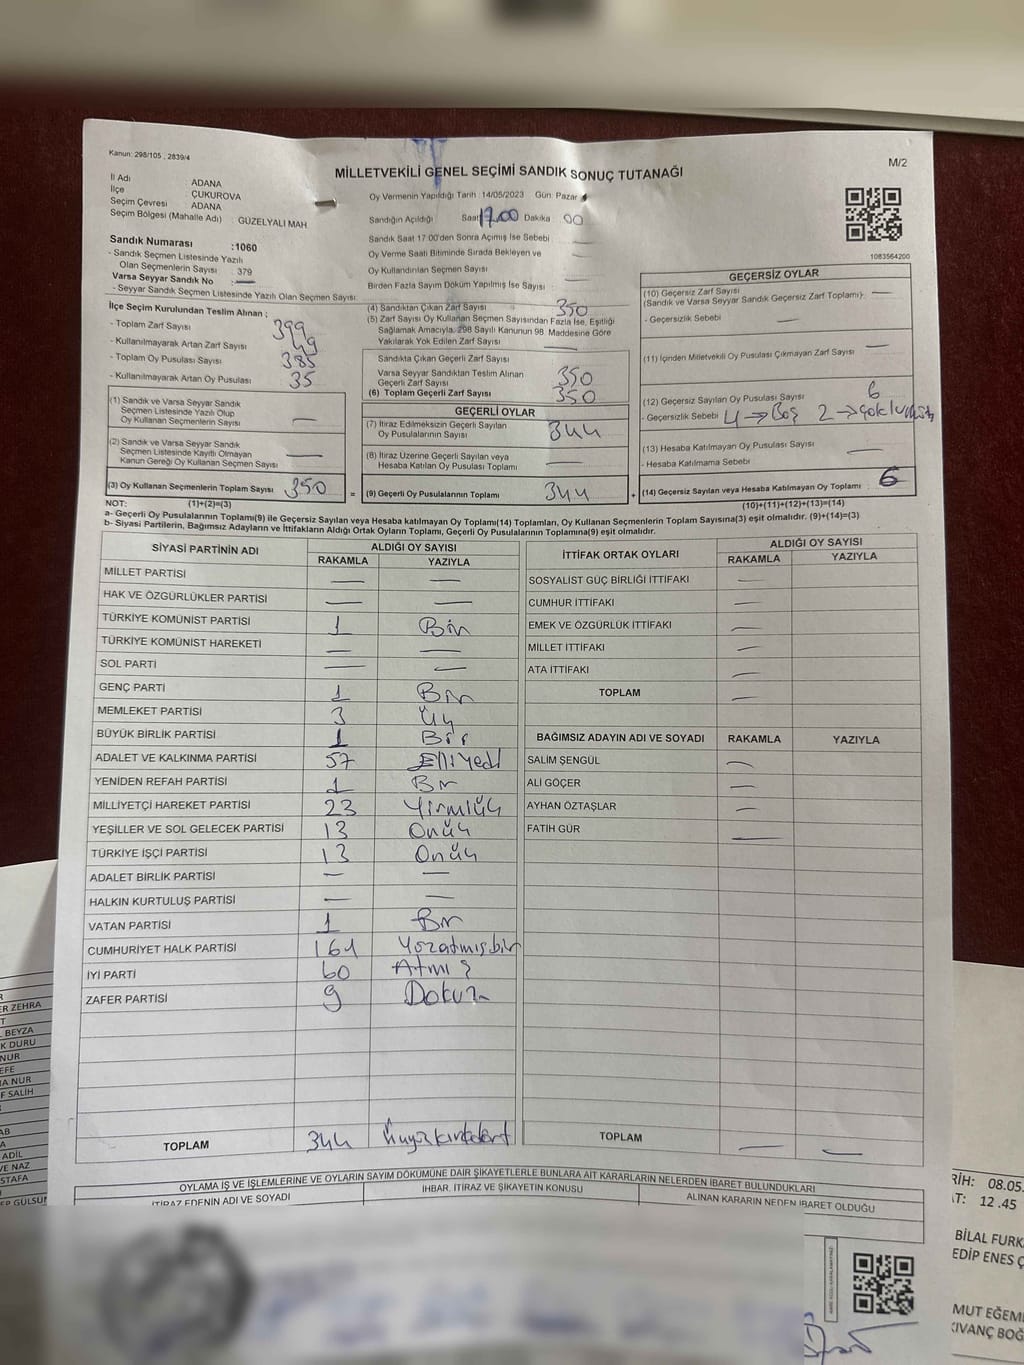 Kanun: 298/105 , 2839/4
M/2
MİLLETVEKİLİ GENEL SEÇİMİ SANDIK SONUÇ TUTANAĞI
İl Adı ADANA
İlçe ÇUKUROVA
Seçim Çevresi ADANA
Seçim Bölgesi (Mahalle Adı) : GÜZELYALI MAH
Sandık Numarası :1060
- Sandık Seçmen Listesinde Yazılı
Olan Seçmenlerin Sayısı : 379
Varsa Seyyar Sandık No :
- Seyyar Sandık Seçmen Listesinde Yazılı Olan Seçmen Sayısı:
Oy Vermenin Yapıldığı Tarih :14/05/2023 Gün: Pazar
Sandığın Açıldığı Saat 17.00 Dakika 00
Sandık Saat 17:00'den Sonra Açımış İse Sebebi
Oy Verme Saati Bitiminde Sırada Bekleyen ve
Oy Kullandırılan Seçmen Sayısı
Birden Fazla Sayım Döküm Yapılmış İse Sayısı :
1083564200
İlçe Seçim Kurulundan Teslim Alınan ;
- Toplam Zarf Sayısı 399
- Kullanılmayarak Artan Zarf Sayısı 49
- Toplam Oy Pusulası Sayısı 385
- Kullanılmayarak Artan Oy Pusulası 35
(1) Sandık ve Varsa Seyyar Sandık
Seçmen Listesinde Yazılı Olup
Oy Kullanan Seçmenlerin Sayısı —
(2) Sandık ve Varsa Seyyar Sandık
Seçmen Listesinde Kayıtlı Olmayan
Kanun Gereği Oy Kullanan Seçmen Sayısı —
(3) Oy Kullanan Seçmenlerin Toplam Sayısı 350
(4) Sandıktan Çıkan Zarf Sayısı 350
(5) Zarf Sayısı Oy Kullanan Seçmen Sayısından Fazla İse, Eşitliği
Sağlamak Amacıyla, 298 Sayılı Kanunun 98. Maddesine Göre
Yakılarak Yok Edilen Zarf Sayısı —
Sandıkta Çıkan Geçerli Zarf Sayısı
Varsa Seyyar Sandıktan Teslim Alınan
Geçerli Zarf Sayısı 350
(6) Toplam Geçerli Zarf Sayısı 350
GEÇERLİ OYLAR
(7) İtiraz Edilmeksizin Geçerli Sayılan
Oy Pusulalarının Sayısı 344
(8) İtiraz Üzerine Geçerli Sayılan veya
Hesaba Katılan Oy Pusulası Toplamı —
= (9) Geçerli Oy Pusulalarının Toplamı 344
GEÇERSİZ OYLAR
(10) Geçersiz Zarf Sayısı
(Sandık ve Varsa Seyyar Sandık Geçersiz Zarf Toplamı): —
- Geçersizlik Sebebi —
(11) İçinden Milletvekili Oy Pusulası Çıkmayan Zarf Sayısı —
(12) Geçersiz Sayılan Oy Pusulası Sayısı 6
- Geçersizlik Sebebi 4 → Boş 2 →
(13) Hesaba Katılmayan Oy Pusulası Sayısı —
- Hesaba Katılmama Sebebi
+ (14) Geçersiz Sayılan veya Hesaba Katılmayan Oy Toplamı : 6
NOT: (1)+(2)=(3)
(10)+(11)+(12)+(13)=(14)
a- Geçerli Oy Pusulalarının Toplamı(9) ile Geçersiz Sayılan veya Hesaba katılmayan Oy Toplam(14) Toplamları, Oy Kullanan Seçmenlerin Toplam Sayısına(3) eşit olmalıdır. (9)+(14)=(3)
b- Siyasi Partilerin, Bağımsız Adayların ve İttifakların Aldığı Ortak Oyların Toplamı, Geçerli Oy Pusulalarının Toplamına(9) eşit olmalıdır.
SİYASİ PARTİNİN ADI ALDIĞI OY SAYISI
RAKAMLA YAZIYLA
MİLLET PARTİSİ — —
HAK VE ÖZGÜRLÜKLER PARTİSİ — —
TÜRKİYE KOMÜNİST PARTİSİ 1 Bir
TÜRKİYE KOMÜNİST HAREKETİ — —
SOL PARTİ — —
GENÇ PARTİ 1 Bir
MEMLEKET PARTİSİ 3 Üç
BÜYÜK BİRLİK PARTİSİ 1 Bir
ADALET VE KALKINMA PARTİSİ 57 Elliyedi
YENİDEN REFAH PARTİSİ 1 Bir
MİLLİYETÇİ HAREKET PARTİSİ 23 Yirmiüç
YEŞİLLER VE SOL GELECEK PARTİSİ 13 Onüç
TÜRKİYE İŞÇİ PARTİSİ 13 Onüç
ADALET BİRLİK PARTİSİ — —
HALKIN KURTULUŞ PARTİSİ — —
VATAN PARTİSİ 1 Bir
CUMHURİYET HALK PARTİSİ 161 Yüzatmışbir
İYİ PARTİ 60 Atmış
ZAFER PARTİSİ 9 Dokuz
TOPLAM 344 Üçyüzkırkdört
İTTİFAK ORTAK OYLARI ALDIĞI OY SAYISI
RAKAMLA YAZIYLA
SOSYALİST GÜÇ BİRLİĞİ İTTİFAKI —
CUMHUR İTTİFAKI —
EMEK VE ÖZGÜRLÜK İTTİFAKI —
MİLLET İTTİFAKI —
ATA İTTİFAKI —
TOPLAM —
BAĞIMSIZ ADAYIN ADI VE SOYADI RAKAMLA YAZIYLA
SALİM ŞENGÜL —
ALİ GÖÇER —
AYHAN ÖZTAŞLAR —
FATİH GÜR —
TOPLAM — —
OYLAMA İŞ VE İŞLEMLERİNE VE OYLARIN SAYIM DÖKÜMÜNE DAİR ŞİKAYETLERLE BUNLARA AİT KARARLARIN NELERDEN İBARET BULUNDUKLARI
İTİRAZ EDENİN ADI VE SOYADI
İHBAR, İTİRAZ VE ŞİKAYETİN KONUSU
ALINAN KARARIN NEDEN İBARET OLDUĞU
ER ZEHRA
BEYZA
K DURU
NUR
EFE
A NUR
F SALİH
AB
A
ADİL
VE NAZ
STAFA
EP GÜLSÜM
RİH: 08.05.
AT: 12.45
BİLAL FURK
EDİP ENES Ç
MUT EGEM
KIVANÇ BOĞ